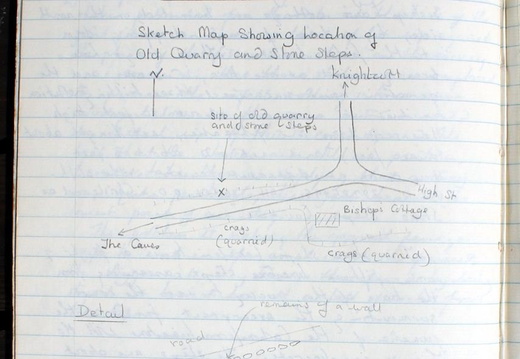 Sketch Map Showing Location of
Old Quarry and Stone Steps.
N
Knightcott
site of old quarry
and stone steps
X
High St
Bishops Cottage
The Caves
crags
(quarried)
crags (quarried)
Detail
remains of a wall
road